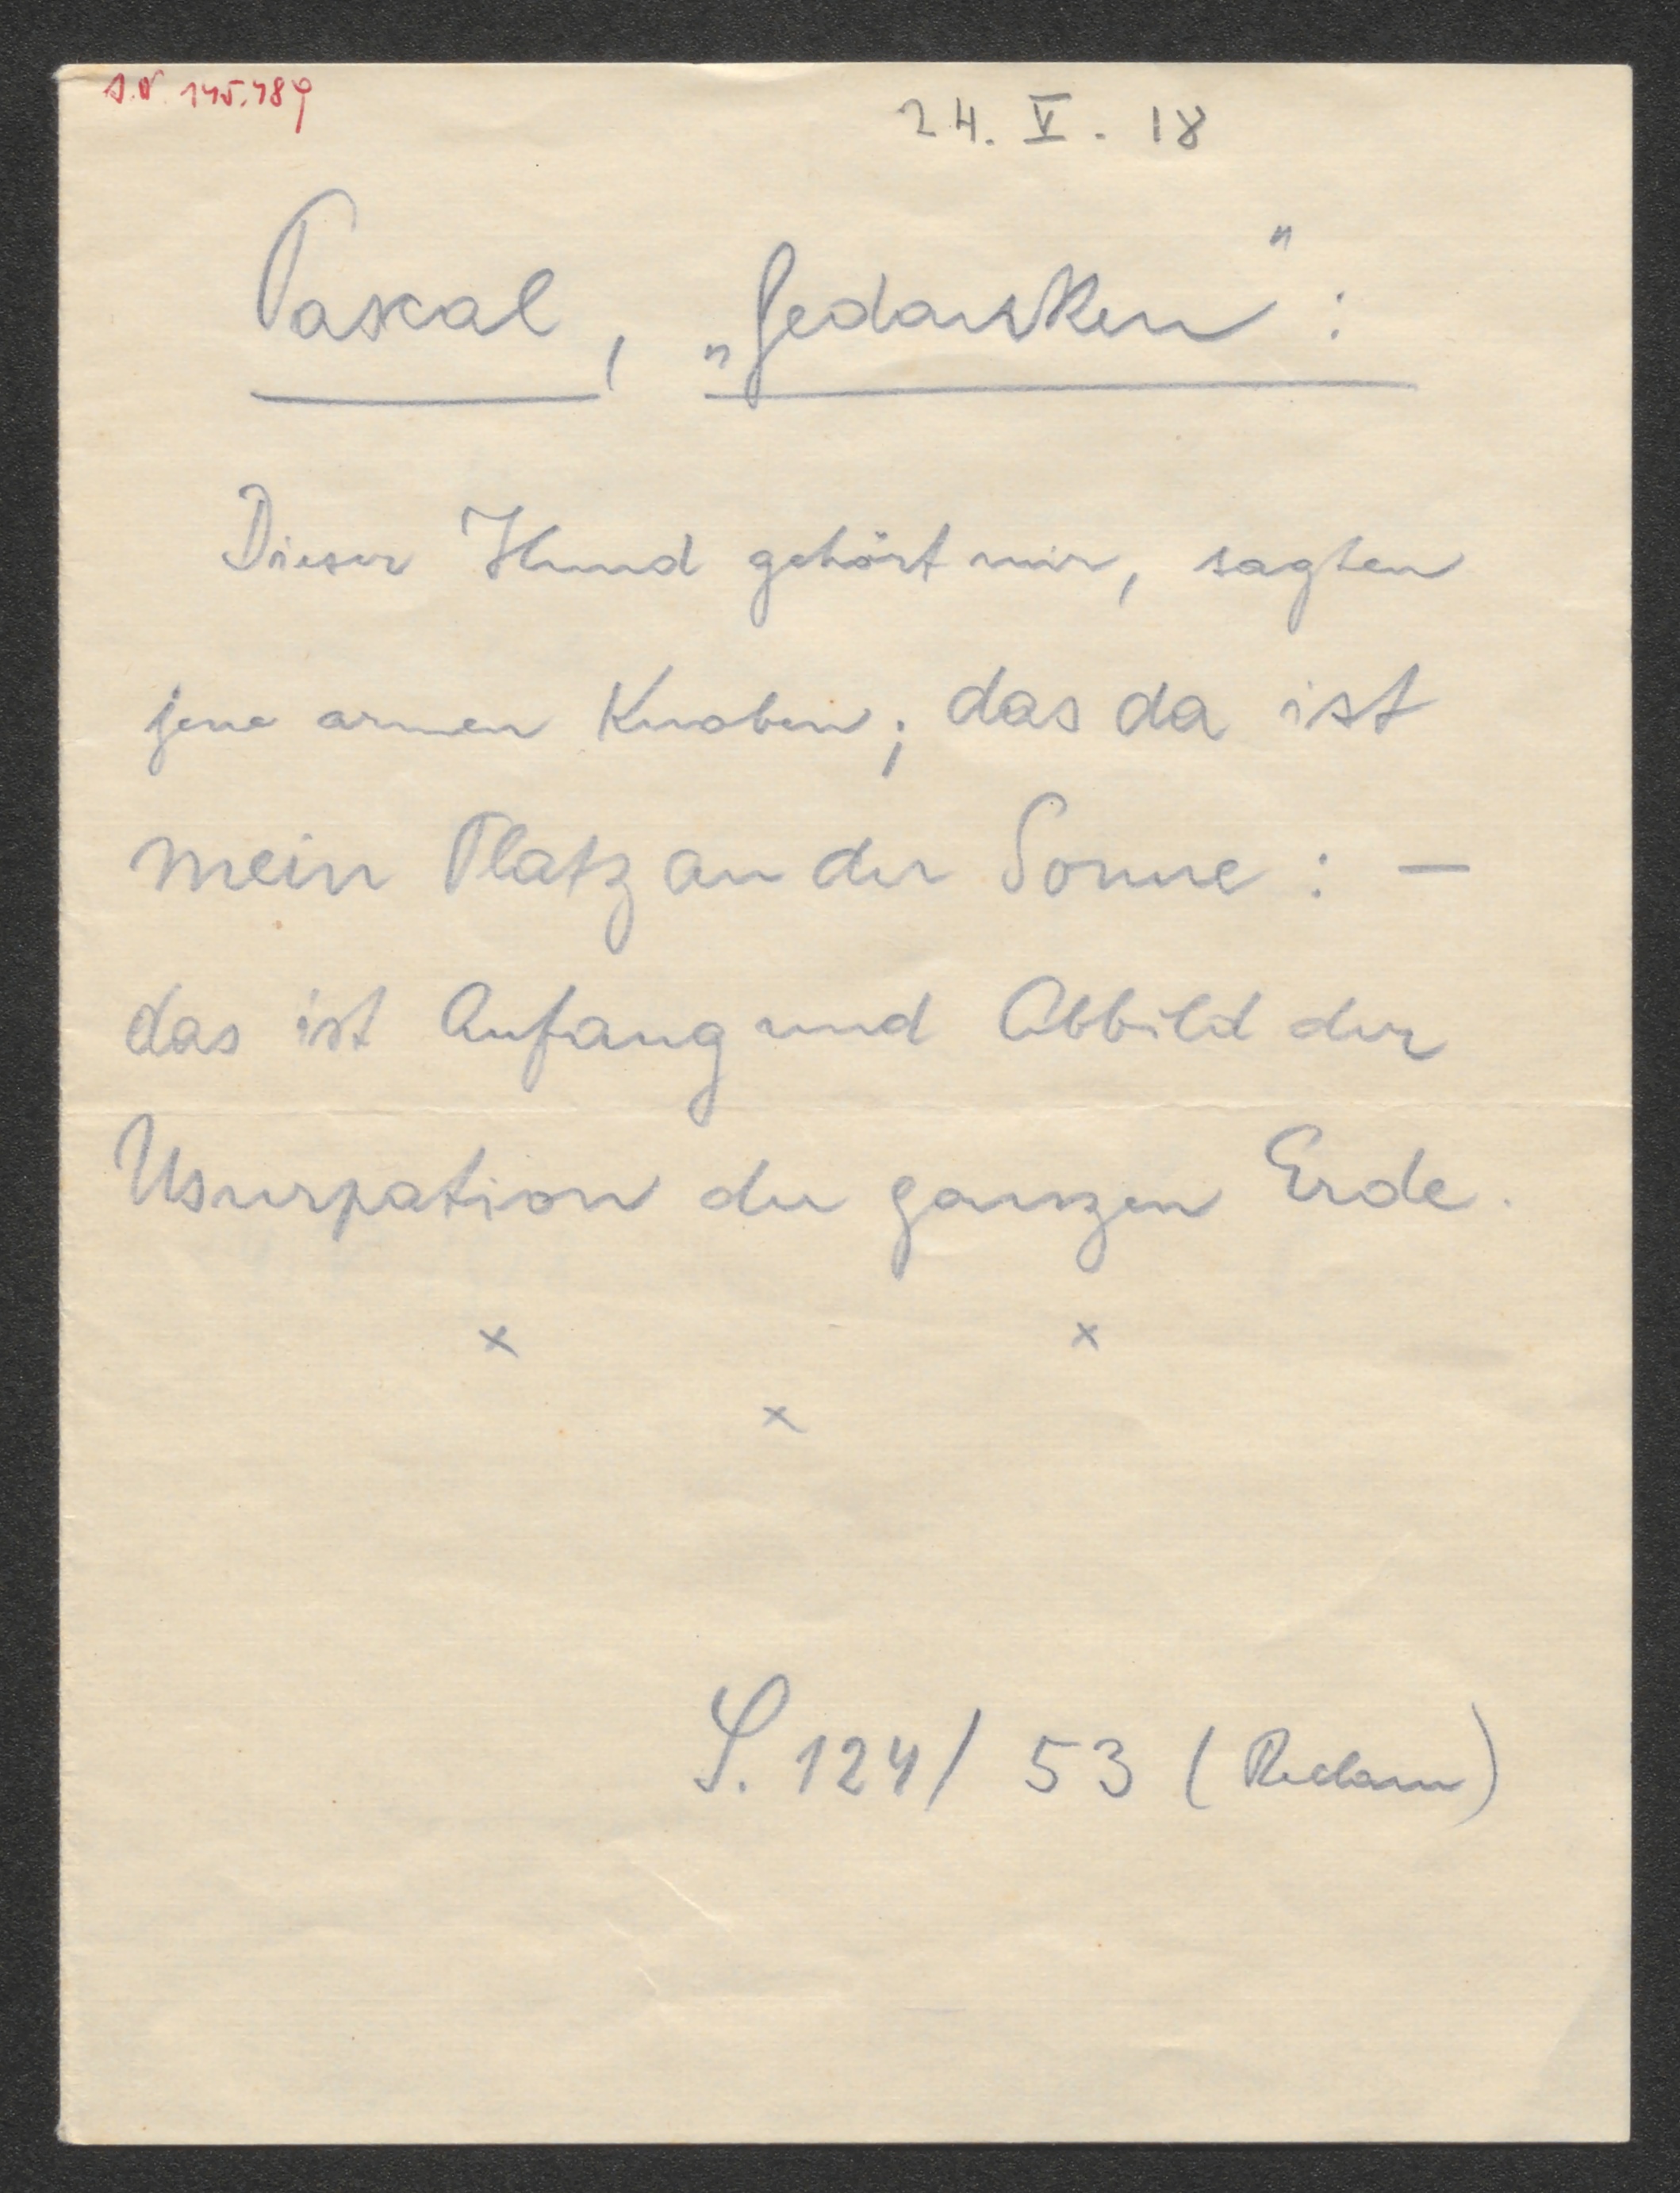 J.N. 145.789
24. V. 18
Pascal, „Gedanken":
Dieser Hund gehört mir, sagten
jene armen Knaben; das da ist
mein Platz an der Sonne: —
das ist Anfang und Abbild der
Usurpation der ganzen Erde.
x x
x
S. 124/ 53 (Reclam)